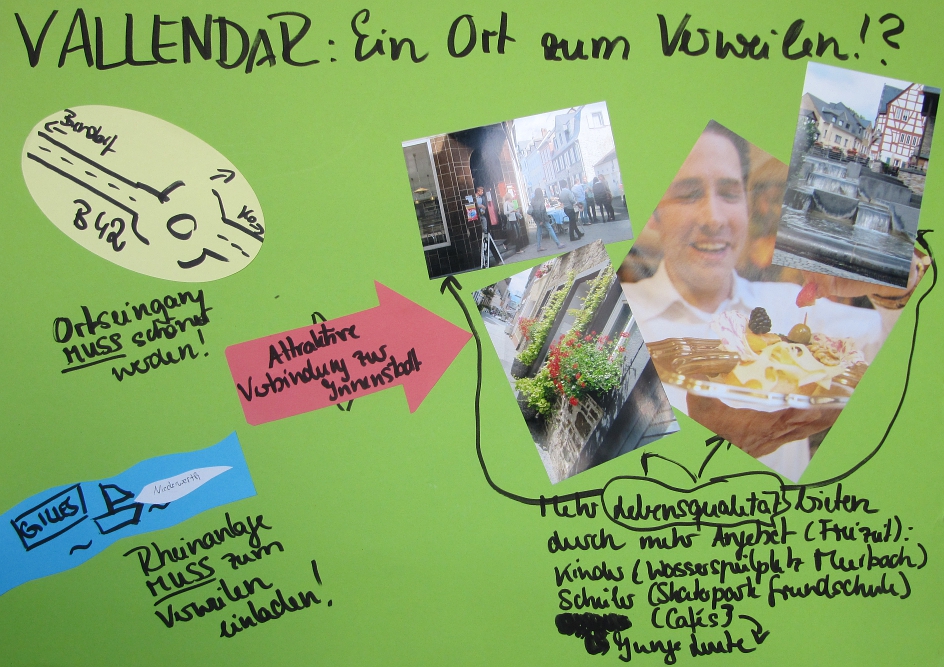 VALLENDAR: Ein Ort zum Verweilen!?
← Bendorf
B42
Ko
Ortseingang
MUSS schöner
werden!
Attraktive
Verbindung zur
Innenstadt
GILLES
Niederwerth
Rheinanlage
MUSS zum
Verweilen
einladen!
Mehr Lebensqualität bieten
durch mehr Angebot (Freizeit):
Kinder (Wasserspielplatz Meerbach)
Schüler (Skatepark Grundschule)
(Cafés)
Junge Leute